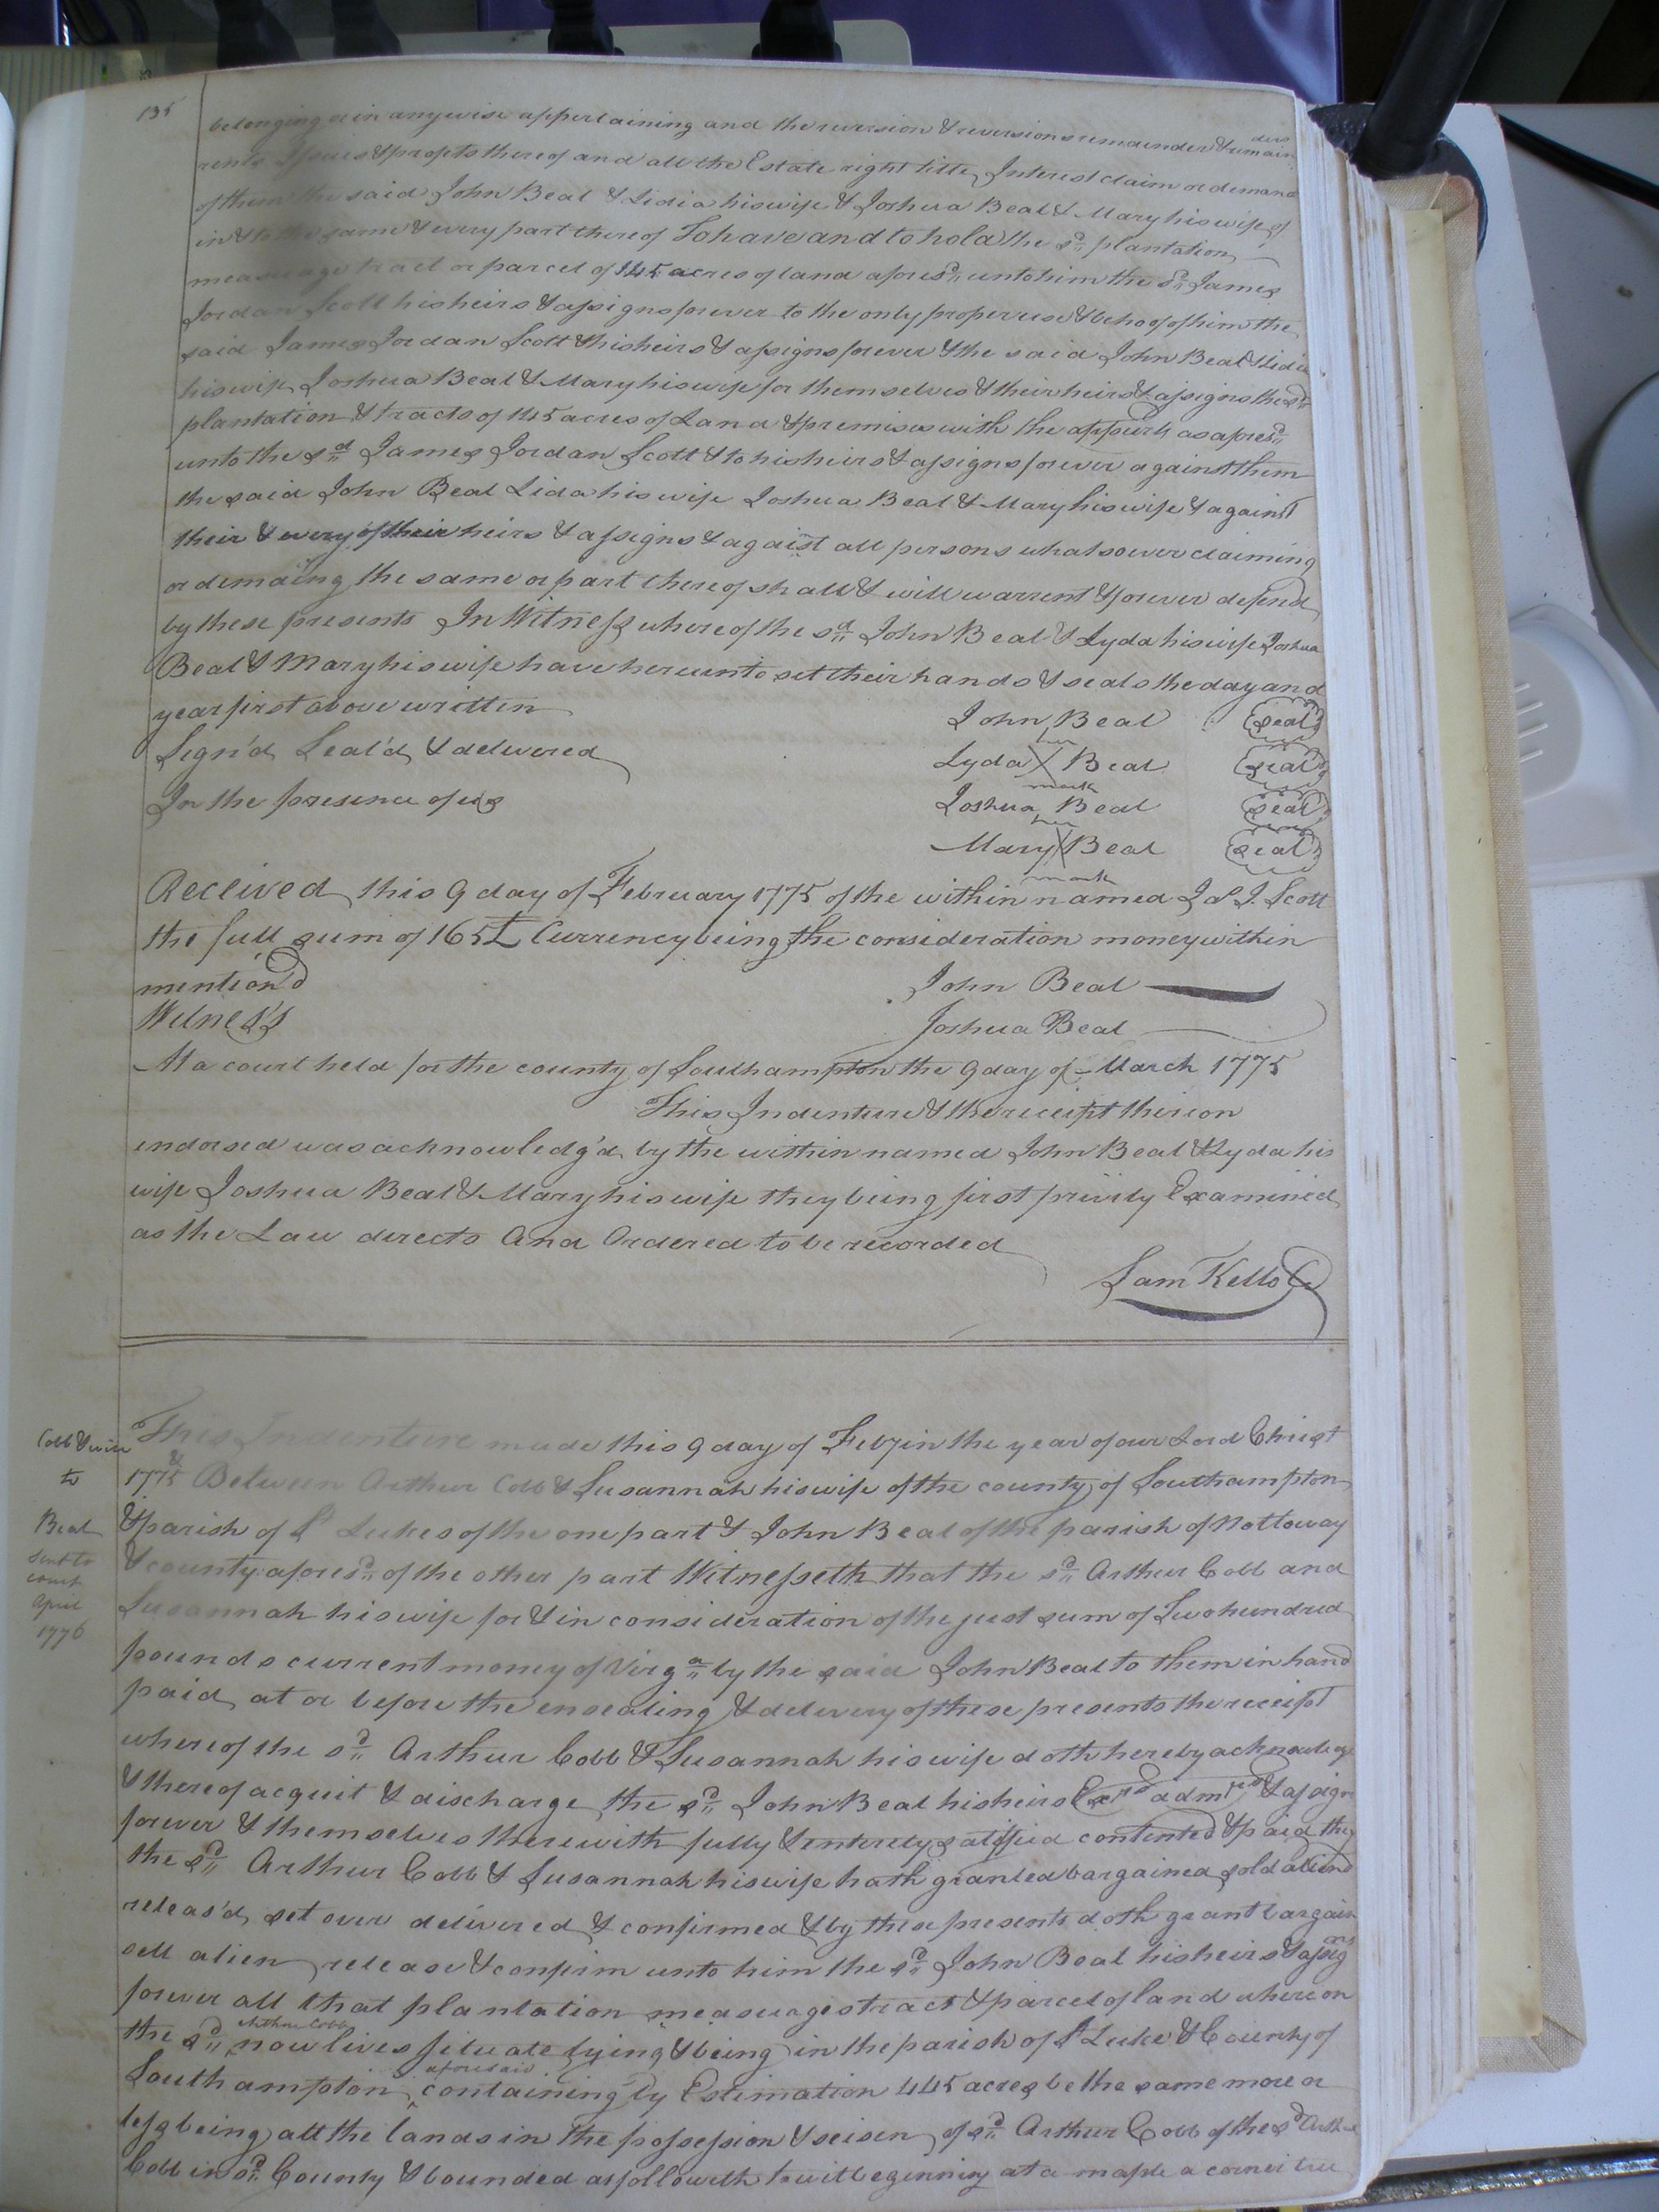 135
belonging or in anywise appertaining and the reversion & reversions remainder & remainders
rents Issues & profits thereof and all the Estate right title, Interest claim or demand
of them the said John Beal & Lidia his wife & Joshua Beal & Mary his wife of
in & to the same & every part thereof To have and to hold the sd. plantation
measuage tract or parcel of 145 acres of land aforesd. unto him the sd. James
Jordan Scott his heirs & assigns forever to the only proper use & behoof of him the
said James Jordan Scott & his heirs & assigns forever & the said John Beal & Lidia
his wife, Joshua Beal & Mary his wife for themselves & their heirs & assigns the sd.
plantation & tracts of 145 acres of Land & premises with the appurts as aforesd.
unto the sd. James Jordan Scott & to his heirs & assigns forever against them
the said John Beal Lida his wife Joshua Beal & Mary his wife & against
their & every of their heirs & assigns & against all persons whatsoever claiming
or demaing the same or part thereof shall & will warrent & forever defend
by these presents In Witness whereof the sd. John Beal & Lyda his wife Joshua
Beal & Mary his wife have hereunto set their hands & seals the day and
year first above written
John Beal seal
Sign'd Seal'd & delivered
Lyda her X mark Beal seal
In the presence of us
Joshua Beal seal
Mary her X mark Beal seal
Received this 9 day of February 1775 of the within named J. J. Scott
the full sum of 165£ Currency being the consideration money within
mention'd
John Beal
Witness's
Joshua Beal
At a court held for the county of Southampton the 9 day of March 1775
This Indenture & the receipt thereon
endorsed was acknowledg'd by the within named John Beal & Lyda his
wife Joshua Beal & Mary his wife they being first privily Examined
as the Law directs And Ordered to be recorded
Sam Kello C
Cobb & wife
to
Beal
Sent to
court
April
1776
This Indenture made this 9 day of Feby in the year of our Lord Christ
1775 Between Arthur Cobb & Susannah his wife of the county of Southampton
& parish of St Lukes of the one part & John Beal of the parish of Nottoway
& county aforesd. of the other part Witnesseth that the sd. Arthur Cobb and
Susannah his wife for & in consideration of the just sum of Two hundred
pounds current money of Virga. by the said John Beal to them in hand
paid, at or before the ensealing & delivery of these presents the receipt
whereof the sd. Arthur Cobb & Susannah his wife doth hereby acknowledge
& thereof acquit & discharge the sd. John Beal his heirs Exrs admrs & assigns
forever & themselves therewith fully & enterely satisfied contented & paid they
the sd. Arthur Cobb & Susannah his wife hath granted bargained sold aliend
releas'd, set over delivered & confirmed & by these presents doth grant bargain
sell alien, release & confirm unto him the sd. John Beal his heirs & assigns
forever all that plantation measuages tract & parcel of land whereon
the sd. Arthur Cobb now lives situate lying & being in the parish of St Luke & County of
Southampton aforesaid containing by Estimation 445 acres be the same more or
less being all the lands in the possession & seisen of sd. Arthur Cobb of the sd Arthur
Cobb in sd. County & bounded as followeth to wit begenning at a maple a corner tree